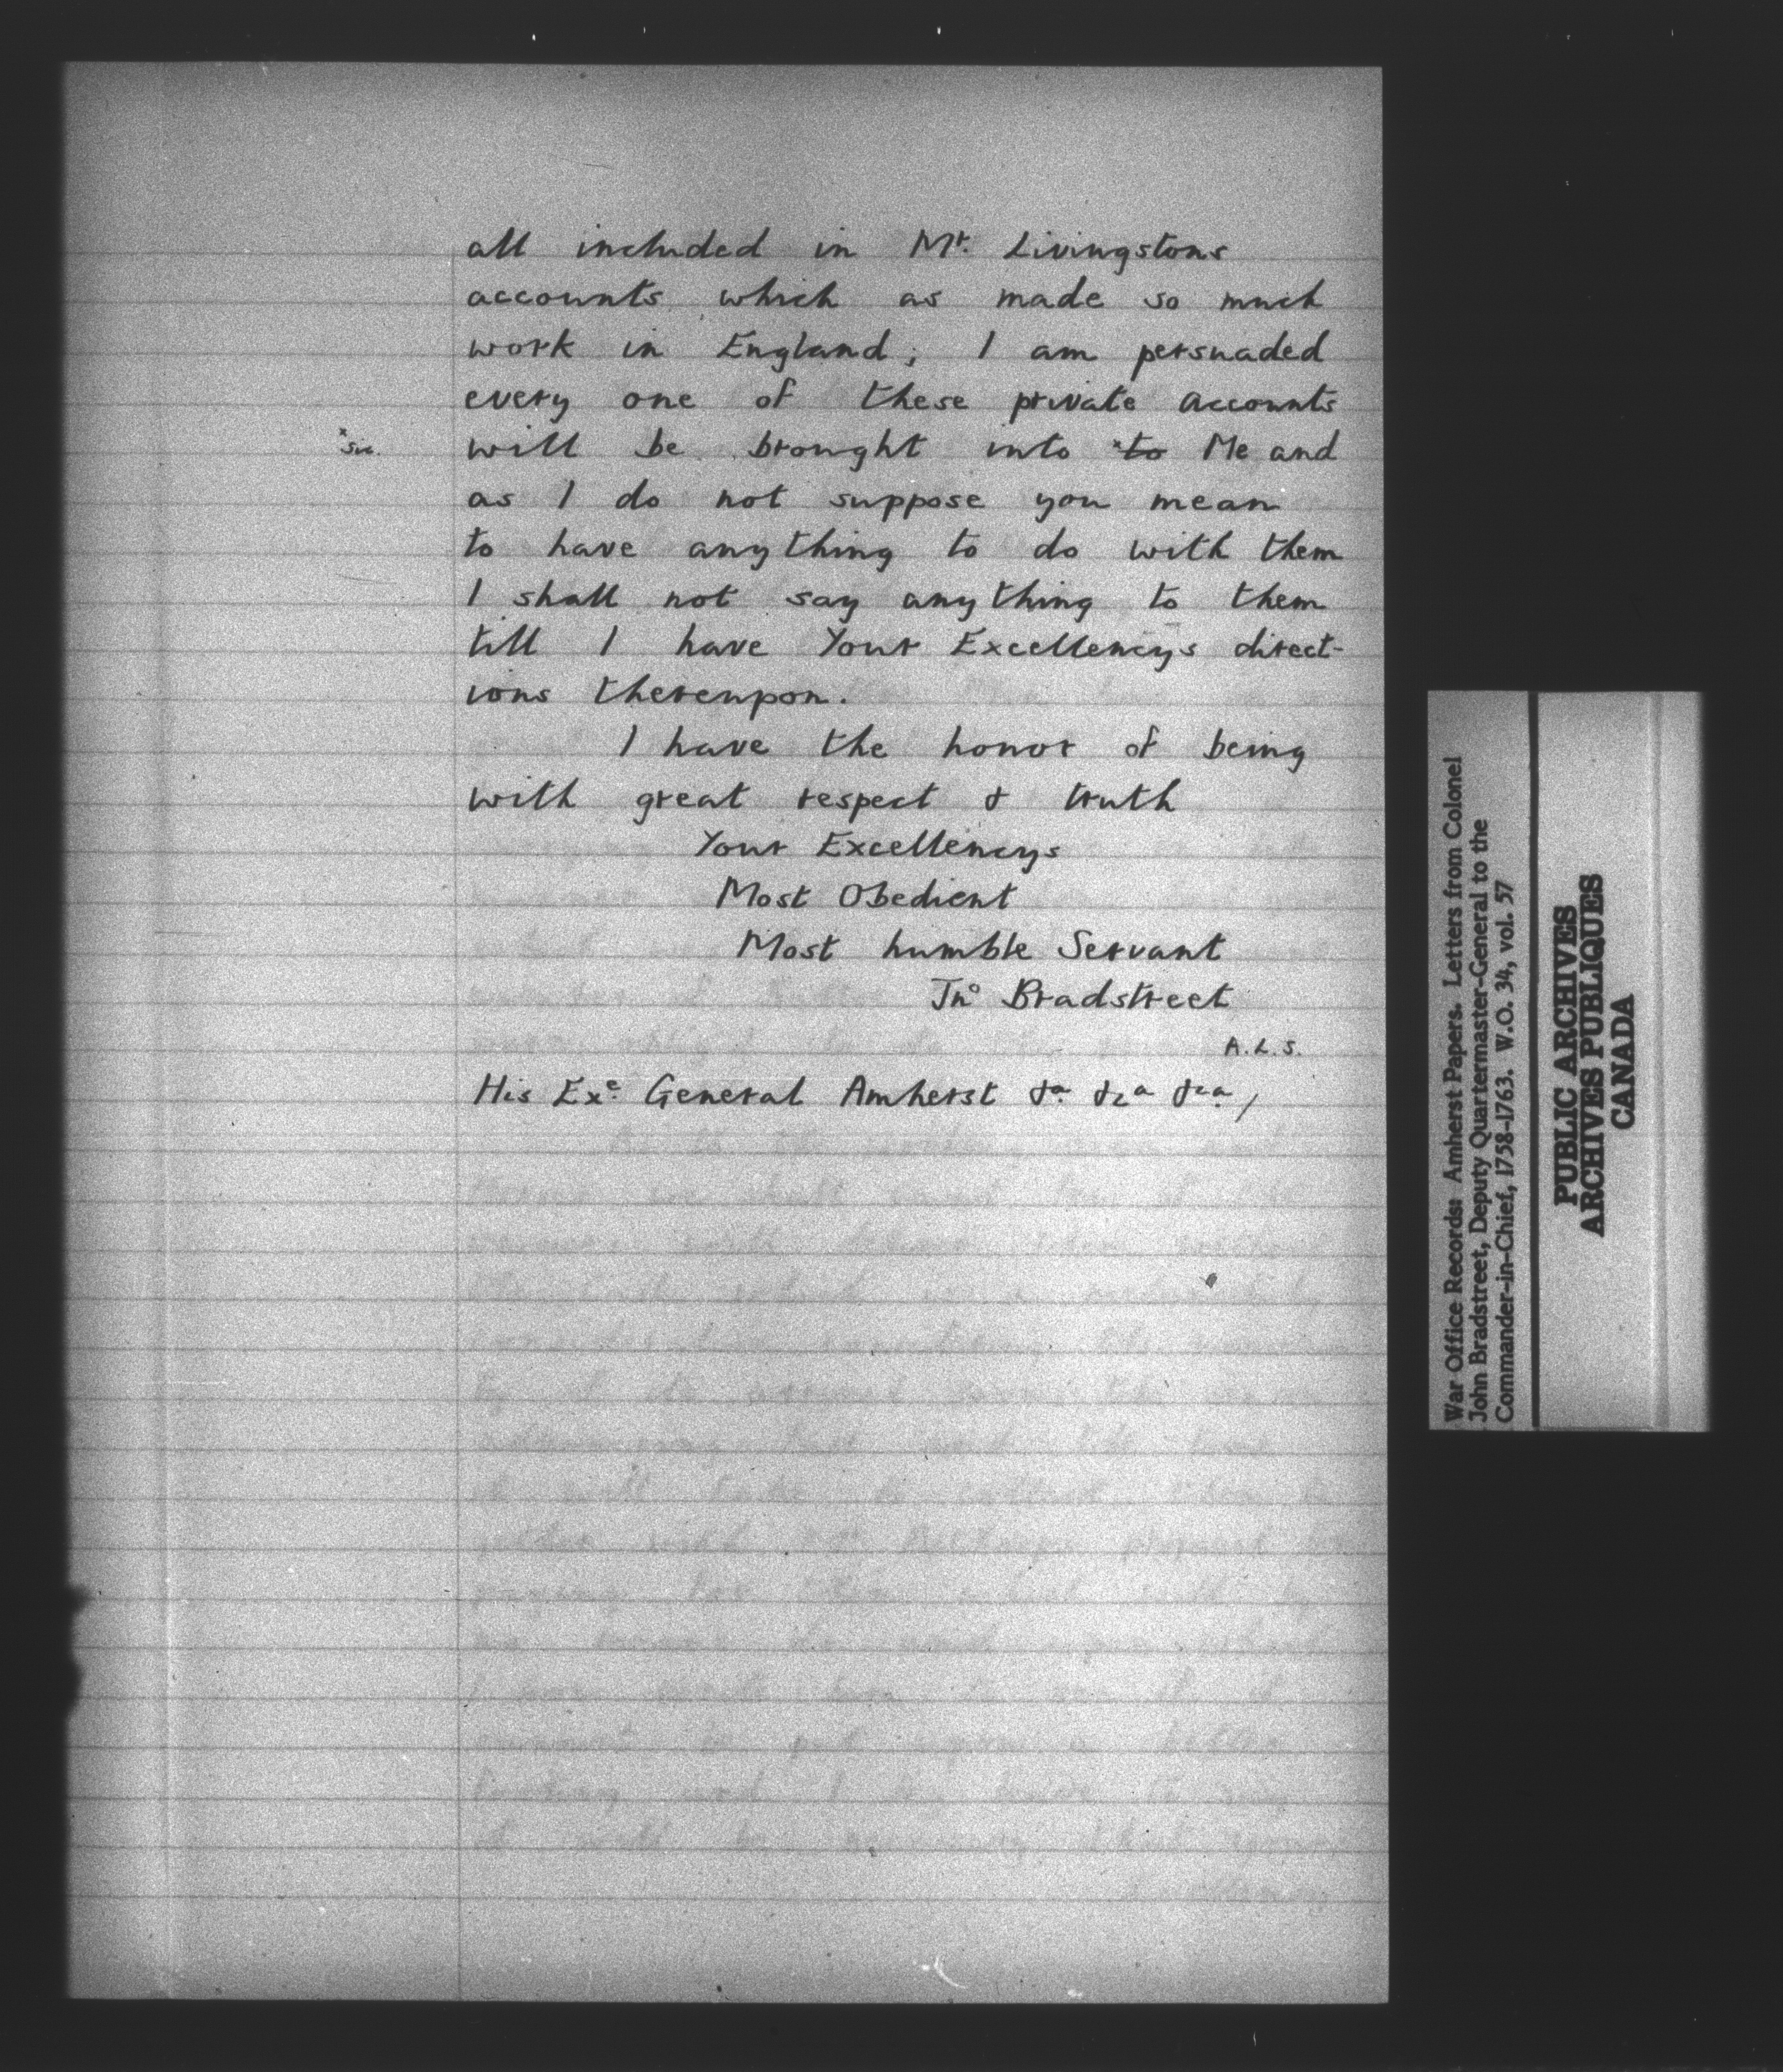 all included in Mr. Livingstons
accounts which as made so much
work in England; I am persuaded
every one of these private accounts
*sic. will be brought into *~~to~~ Me and
as I do not suppose you mean
to have anything to do with them
I shall not say anything to them
till I have Your Excellencys direct-
ions thereupon.
I have the honor of being
with great respect & truth
Your Excellencys
Most Obedient
Most humble Servant
Jno Bradstreet
A.L.S.
His Exe. General Amherst &a. &ca &ca,/
War Office Records: Amherst Papers. Letters from Colonel
John Bradstreet, Deputy Quartermaster-General to the
Commander-in-Chief, 1758-1763. W.O. 34, vol. 57
PUBLIC ARCHIVES
ARCHIVES PUBLIQUES
CANADA